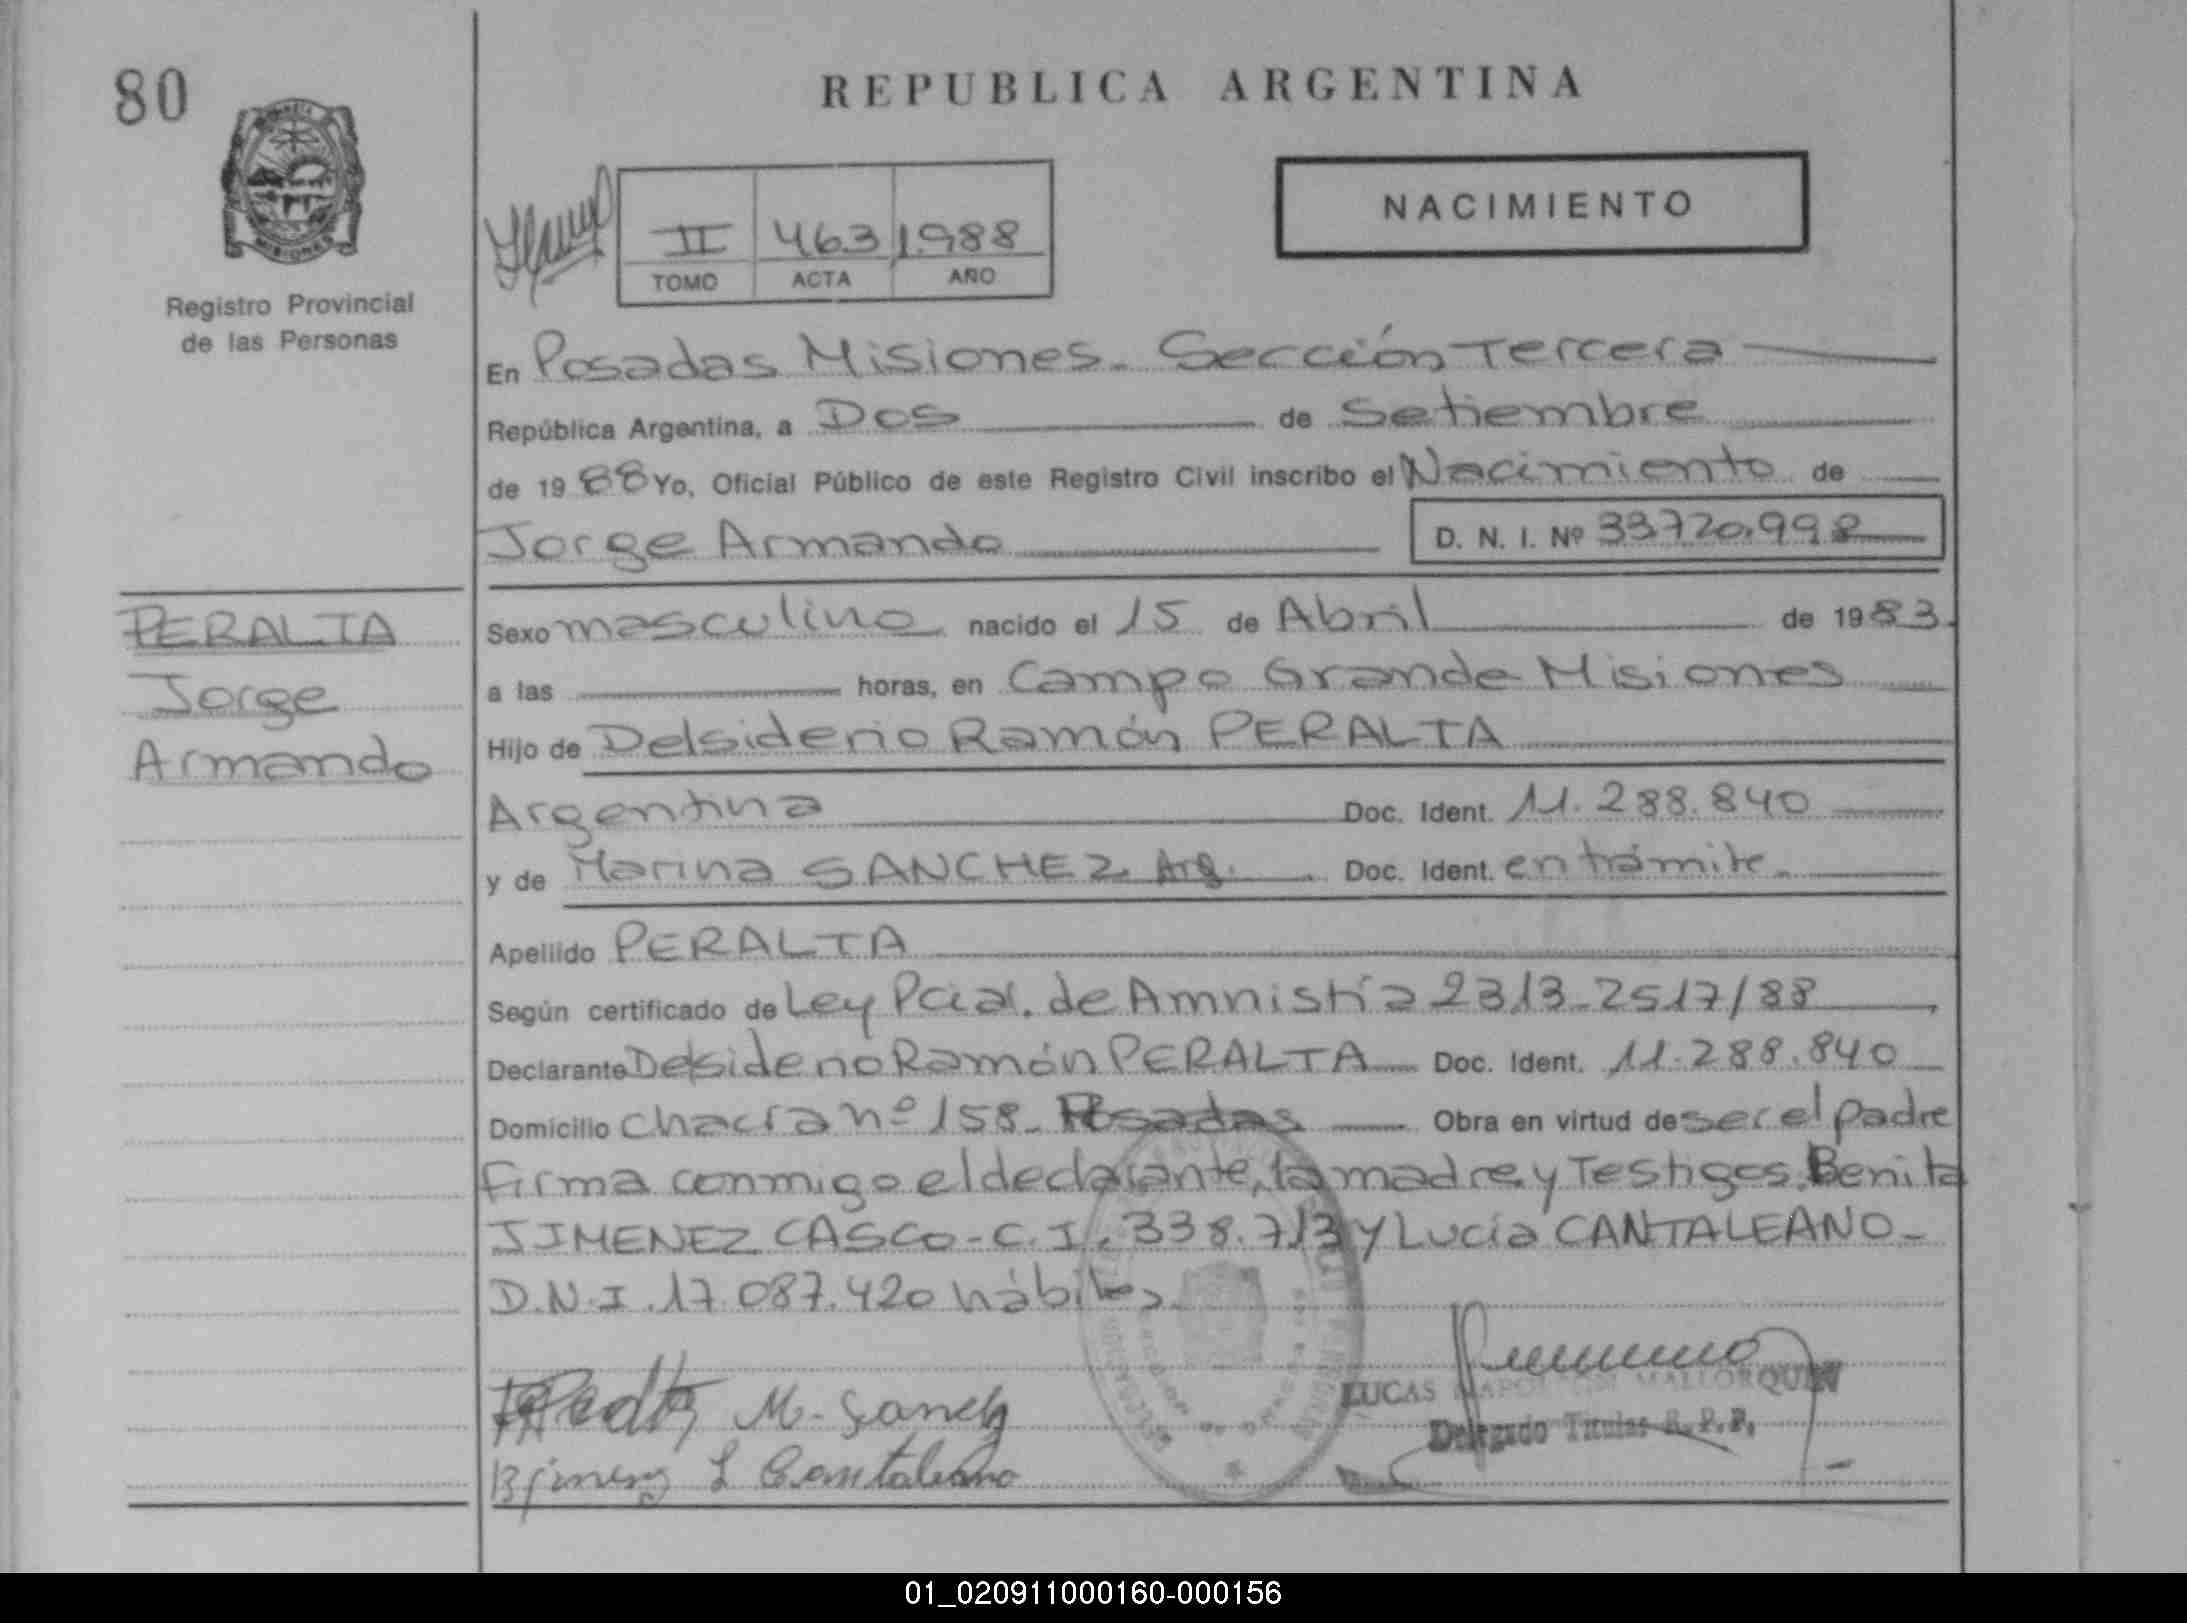 80
REPUBLICA ARGENTINA
MISIONES
Registro Provincial
de las Personas
II 463 1.988
TOMO ACTA AÑO
NACIMIENTO
En Posadas Misiones. Sección Tercera
República Argentina, a Dos de Setiembre
de 1988 Yo, Oficial Público de este Registro Civil inscribo el Nacimiento de
Jorge Armando D. N. I. Nº 33720.998
PERALTA
Jorge
Armando
Sexo masculino nacido el 15 de Abril de 1983.
a las horas, en Campo Grande Misiones
Hijo de Delsiderio Ramón PERALTA
Argentina Doc. Ident. 11.288.840
y de Marina SANCHEZ Arg. Doc. Ident. en trámite.
Apellido PERALTA
Según certificado de Ley Pcial. de Amnistía 2313-2517/88
Declarante Delsiderio Ramón PERALTA Doc. Ident. 11.288.840
Domicilio chacra nº 158. Posadas Obra en virtud de ser el padre
firma conmigo el declarante, la madre y Testigos Benita
JIMENEZ CASCO - C.I. 338.713 y Lucía CANTALEANO -
D.N.I. 17.087.420 hábiles
M. Sanch
L Cantaleano
LUCAS MALLORQUIN
Delegado Titular R.P.P.
01_020911000160-000156